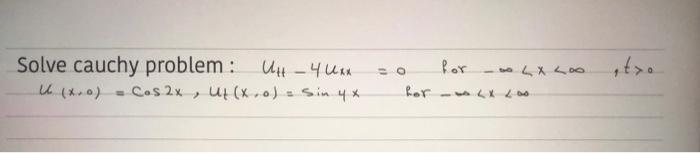 Solve cauchy problem : Utt - 4Uxx = 0 for -∞ < x < ∞ , t > 0
U (x,0) = Cos 2x , Ut (x,0) = Sin 4x for -∞ < x < ∞